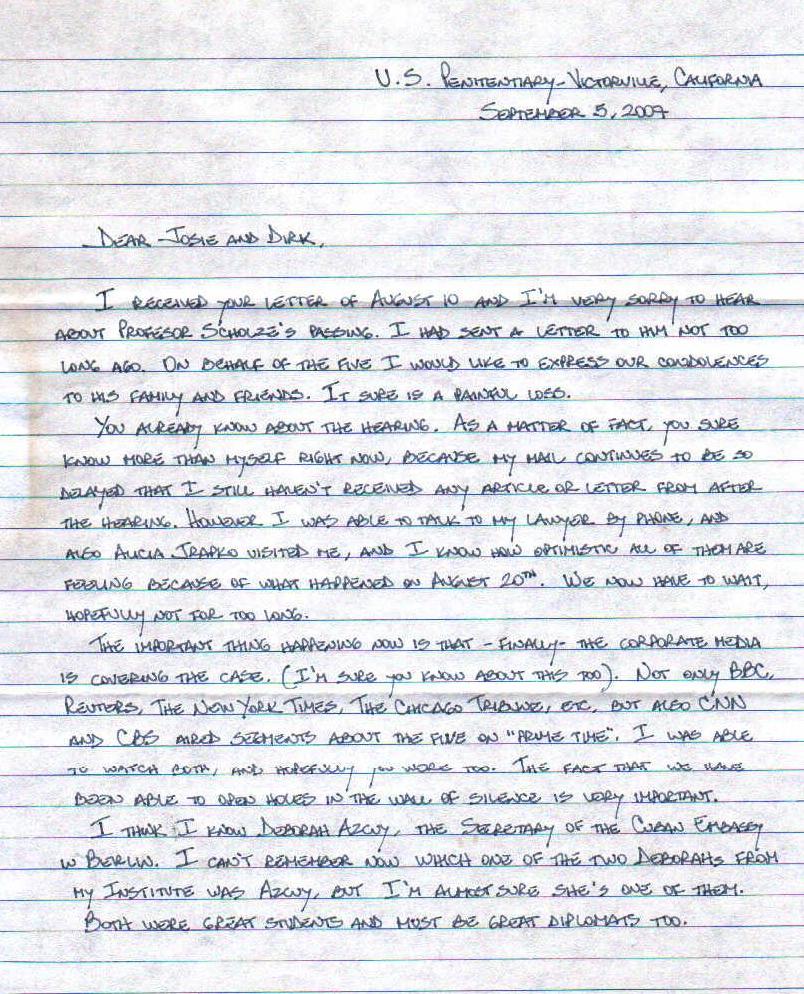 U.S. PENITENTIARY-VICTORVILLE, CALIFORNIA
SEPTEMBER 5, 2007
DEAR JOSIE AND DIRK,
I RECEIVED YOUR LETTER OF AUGUST 10 AND I'M VERY SORRY TO HEAR
ABOUT PROFESOR SCHOLZE'S PASSING. I HAD SENT A LETTER TO HIM NOT TOO
LONG AGO. ON BEHALF OF THE FIVE I WOULD LIKE TO EXPRESS OUR CONDOLENCES
TO HIS FAMILY AND FRIENDS. IT SURE IS A PAINFUL LOSS.
YOU ALREADY KNOW ABOUT THE HEARING. AS A MATTER OF FACT, YOU SURE
KNOW MORE THAN MYSELF RIGHT NOW, BECAUSE MY MAIL CONTINUES TO BE SO
DELAYED THAT I STILL HAVEN'T RECEIVED ANY ARTICLE OR LETTER FROM AFTER
THE HEARING. HOWEVER I WAS ABLE TO TALK TO MY LAWYER BY PHONE, AND
ALSO ALICIA JRAPKO VISITED ME, AND I KNOW HOW OPTIMISTIC ALL OF THEM ARE
FEELING BECAUSE OF WHAT HAPPENED ON AUGUST 20TH. WE NOW HAVE TO WAIT,
HOPEFULLY NOT FOR TOO LONG.
THE IMPORTANT THING HAPPENING NOW IS THAT -FINALLY- THE CORPORATE MEDIA
IS COVERING THE CASE. (I'M SURE YOU KNOW ABOUT THIS TOO). NOT ONLY BBC,
REUTERS, THE NEW YORK TIMES, THE CHICAGO TRIBUNE, ETC, BUT ALSO CNN
AND CBS AIRED SEGMENTS ABOUT THE FIVE ON "PRIME TIME". I WAS ABLE
TO WATCH BOTH, AND HOPEFULLY YOU WERE TOO. THE FACT THAT WE HAVE
BEEN ABLE TO OPEN HOLES IN THE WALL OF SILENCE IS VERY IMPORTANT.
I THINK I KNOW DEBORAH AZCUY, THE SECRETARY OF THE CUBAN EMBASSY
IN BERLIN. I CAN'T REMEMBER NOW WHICH ONE OF THE TWO DEBORAHS FROM
MY INSTITUTE WAS AZCUY, BUT I'M ALMOST SURE SHE'S ONE OF THEM.
BOTH WERE GREAT STUDENTS AND MUST BE GREAT DIPLOMATS TOO.